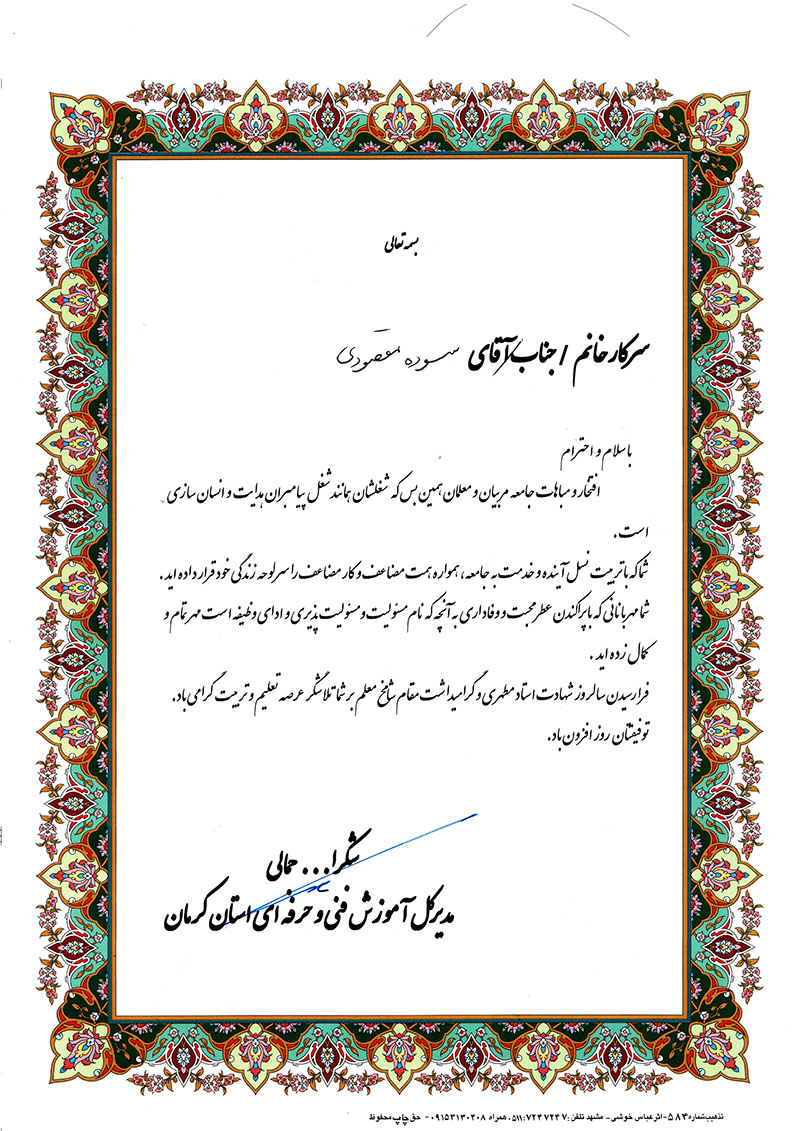 بسمه تعالی
سرکار خانم / جناب آقای سوده مقصودی
باسلام و احترام
افتخار و مباهات جامعه مربیان و معلمان همین بس که شغلشان همانند شغل پیامبران هدایت و انسان سازی
است .
شما که با تربیت نسل آینده و خدمت به جامعه ، همواره همت مضاعف و کار مضاعف را سرلوحه زندگی خود قرار داده اید .
شما مهربانانی که با پراکندن عطر محبت و وفاداری به آنچه که نام مسئولیت و مسئولیت پذیری و ادای وظیفه است مهر تمام و
کمال زده اید .
فرا رسیدن سالروز شهادت استاد مطهری و گرامیداشت مقام شامخ معلم بر شما تلاشگر عرصه تعلیم و تربیت گرامی باد .
توفیقتان روز افزون باد .
شکرا... جمالی
مدیرکل آموزش فنی و حرفه ای استان کرمان
تذهیب شماره ۵۸۳- اثر عباس خوشی - مشهد تلفن : ۷۲۴۷۲۴۷ :۵۱۱، همراه ۰۹۱۵۳۱۳۰۴۰۸ - حق چاپ محفوظ